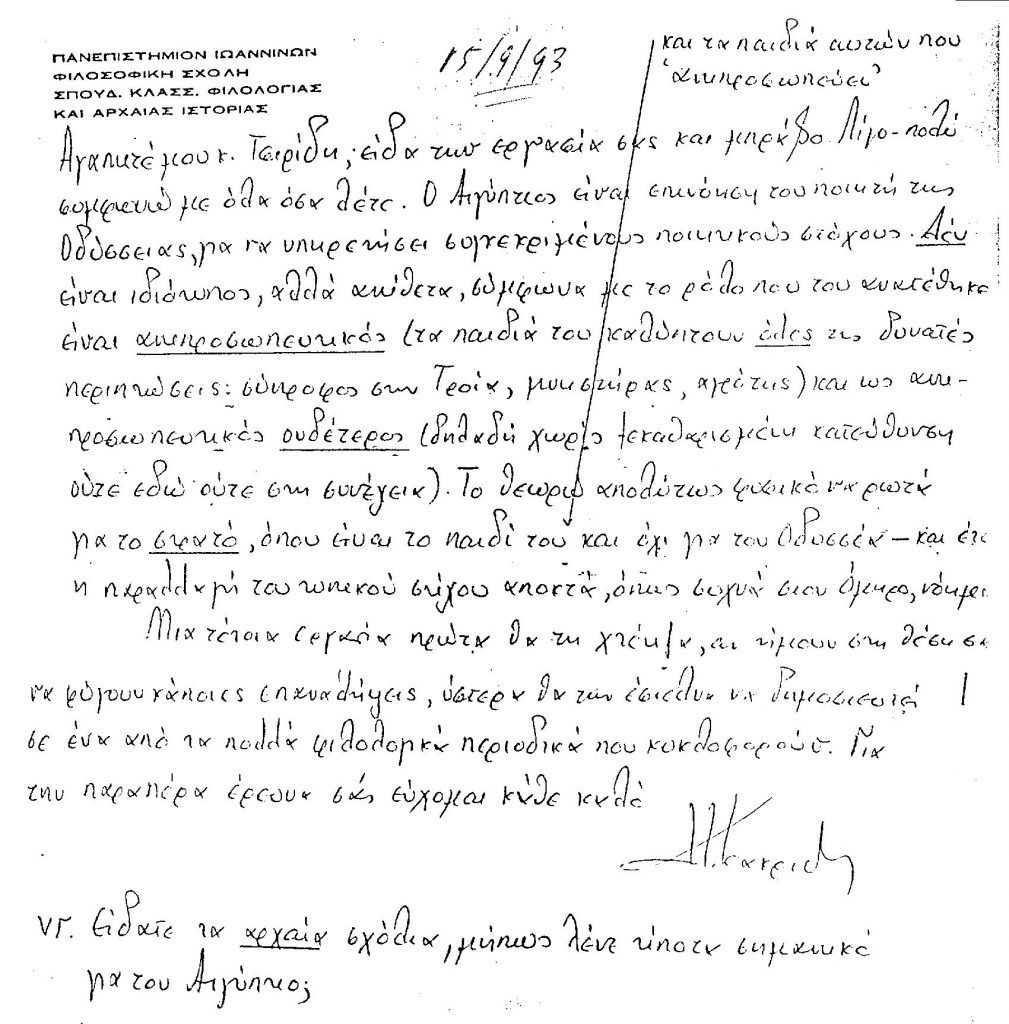 ΠΑΝΕΠΙΣΤΗΜΙΟΝ ΙΩΑΝΝΙΝΩΝ
ΦΙΛΟΣΟΦΙΚΗ ΣΧΟΛΗ
ΣΠΟΥΔ. ΚΛΑΣΣ. ΦΙΛΟΛΟΓΙΑΣ
ΚΑΙ ΑΡΧΑΙΑΣ ΙΣΤΟΡΙΑΣ
15/9/93
και τα παιδιά αυτών που
"αντιπροσωπεύει"
Αγαπητέ μου κ. Τσιρίδη, είδα την εργασία σας και μπράβο. Λίγο-πολύ
συμφωνώ με όλα όσα λέτε. Ο Αιγύπτιος είναι επινόηση του ποιητή της
Οδύσσειας, για να υπηρετήσει συγκεκριμένους ποιητικούς στόχους. Δεν
είναι ιδιότυπος, αλλά αντίθετα, σύμφωνα με το ρόλο που του ανατέθηκε
είναι αντιπροσωπευτικός (τα παιδιά του καλύπτουν όλες τις δυνατές
περιπτώσεις: σύντροφος στην Τροία, μνηστήρας, αγρότης) και ως αντι-
προσωπευτικός ουδέτερος (δηλαδή χωρίς ξεκαθαρισμένη κατεύθυνση
ούτε εδώ ούτε στη συνέχεια). Το θεωρώ απολύτως φυσικό να ρωτά
για το στρατό, όπου είναι το παιδί του και όχι για τον Οδυσσέα – και έτσι
η παραλλαγή του τυπικού στίχου αποκτά, όπως συχνά στον Όμηρο, νόημα.
Μια τέτοια εργασία πρώτα θα τη χτένιζα, αν ήμουν στη θέση σα
να φύγουν κάποιες επαναλήψεις, ύστερα θα την έστελνα να δημοσιευτεί
σε ένα από τα πολλά φιλολογικά περιοδικά που κυκλοφορούν. Για
την παραπέρα έρευνα σάς εύχομαι κάθε καλό
Κακριδή
ΥΓ. Είδατε τα αρχαία σχόλια, μήπως λένε τίποτα σημαντικό
για τον Αιγύπτιο;